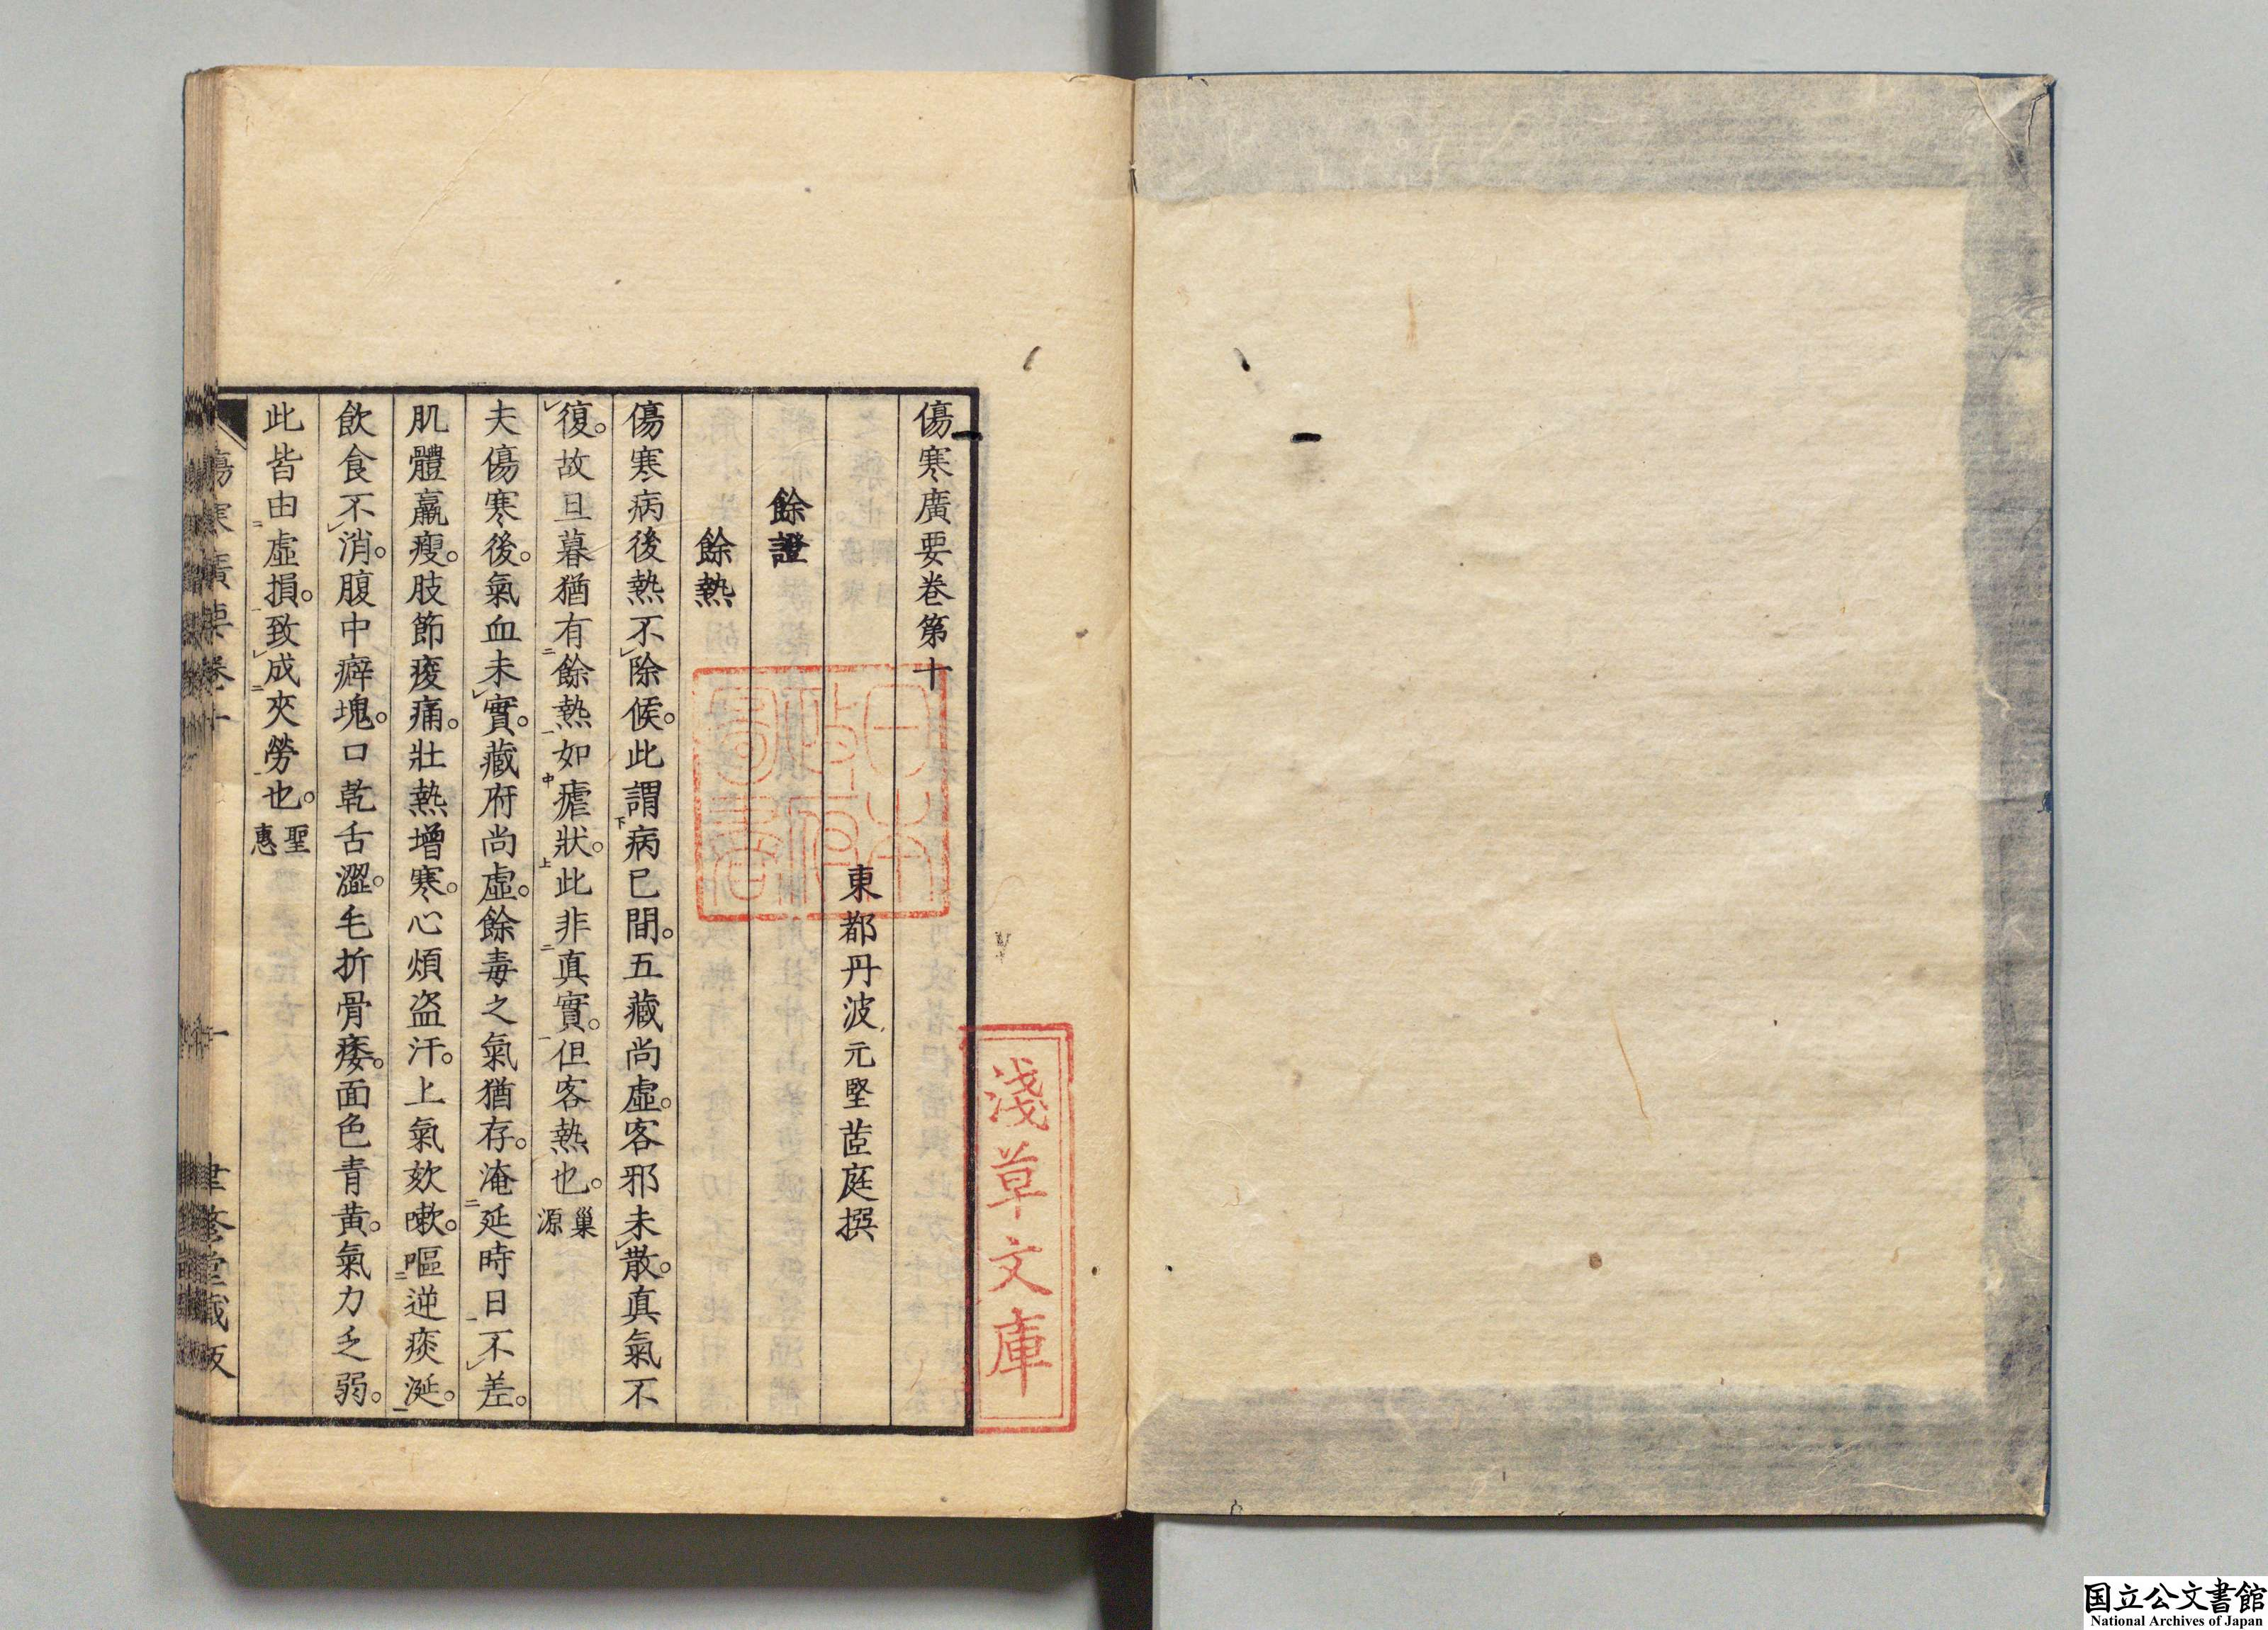 傷寒廣要卷第十
東都丹波元堅茝庭撰
餘證
餘熱
傷寒病後熱不除候。此謂病已間。五藏尚虛。客邪未散。真氣不
復。故旦暮猶有餘熱如瘧狀。此非真實。但客熱也。巢源
夫傷寒後。氣血未實。藏府尚虛。餘毒之氣猶存。淹延時日不差。
肌體羸瘦。肢節痠痛。壯熱增寒。心煩盗汗。上氣欬嗽。嘔逆痰涎。
飲食不消。腹中癖塊。口乾舌澀。毛折骨痿。面色青黄。氣力乏弱。
此皆由虛損。致成夾勞也。聖惠
傷寒廣要卷十
一
聿修堂藏版
日本政府圖書
淺草文庫
国立公文書館
National Archives of Japan